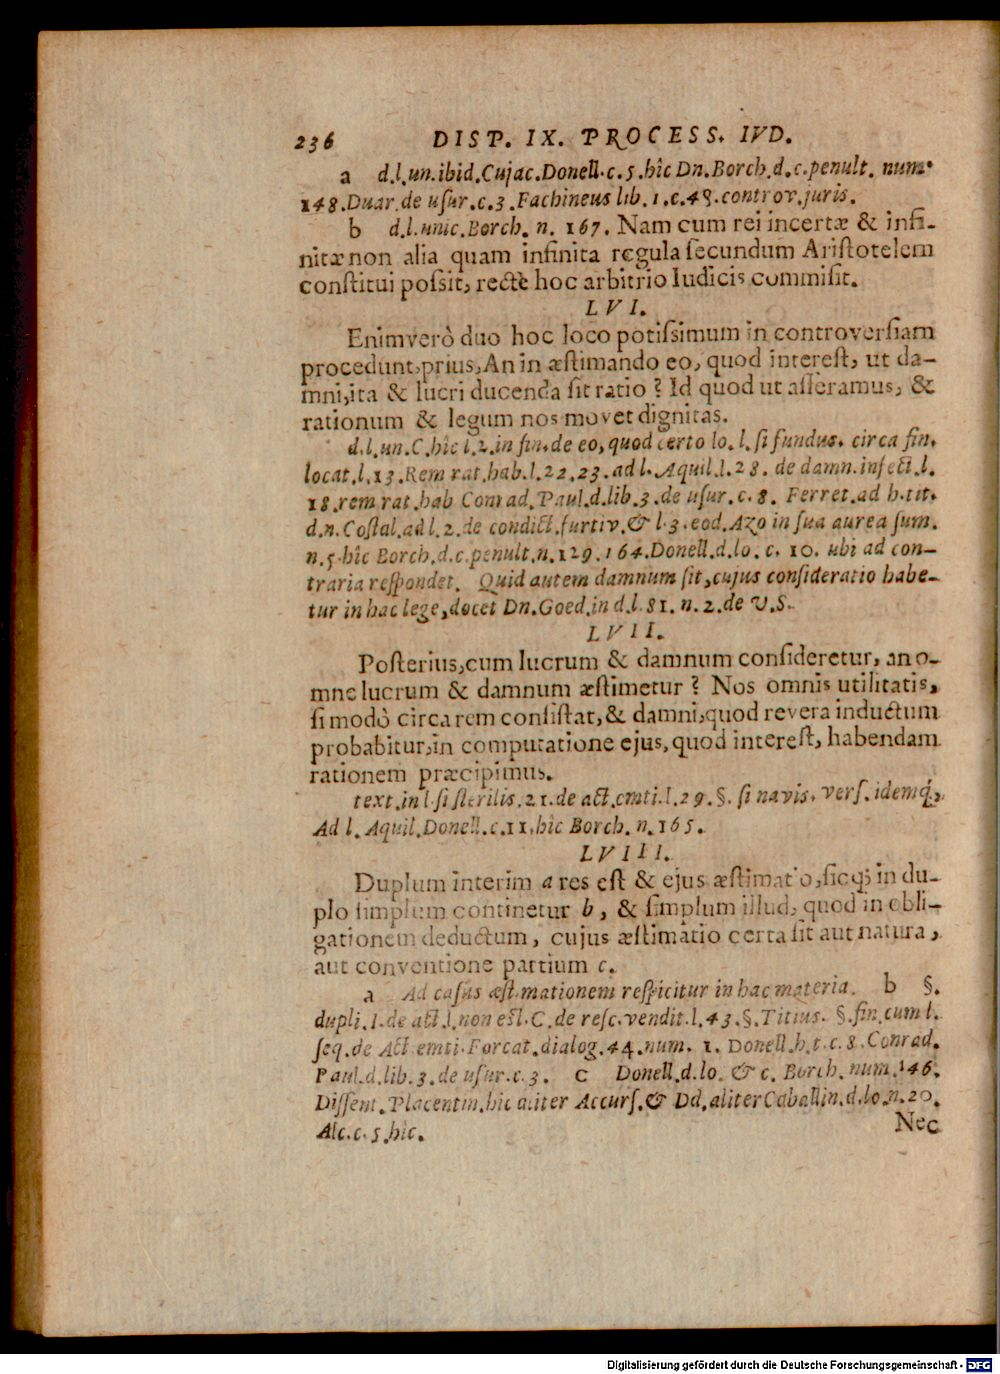 236 DISP. IX. PROCESS. IVD.
a d.l.un.ibid.Cujac.Donell.c.5.hîc Dn.Borch.d.c.penult. num.
148.Duar.de uſur.c.3.Fachineus lib.1.c.48.controv.juris.
b d.l.unic.Borch. n. 167. Nam cum rei incertæ & infi-
nitæ non alia quam infinita regula ſecundum Ariſtotelem
conſtitui poſsit, rectè hoc arbitrio Iudicis commiſit.
LVI.
Enimverò duo hoc loco potiſsimum in controverſiam
procedunt, prius, An in æſtimando eo, quod intereſt, ut da-
mni, ita & lucri ducenda ſit ratio? Id quod ut aſſeramus, &
rationum & legum nos movet dignitas.
d.l.un.C.hîc l.2.in fin.de eo, quod certo lo. l. ſi fundus. circa fin.
locat.l.13.Rem rat.hab.l.22.23. ad l. Aquil.l.28. de damn.infect.l.
18.rem rat.hab Conrad.Paul.d.lib.3.de uſur.c.8. Ferret.ad h.tit.
d.n.Coſtal.ad l.2.de condict.furtiv.& l.3.eod.Azo in ſua aurea ſum.
n.5.hîc Borch.d.c.penult.n.129.164.Donell.d.lo. c. 10. ubi ad con-
traria reſpondet. Quid autem damnum ſit, cujus conſideratio habe-
tur in hac lege, docet Dn.Goed.in d.l.81. n. 2. de V.S.
LVII.
Poſterius, cum lucrum & damnum conſideretur, an o-
mne lucrum & damnum æſtimetur? Nos omnis utilitatis,
ſi modò circa rem conſiſtat, & damni, quod revera inductum
probabitur, in computatione ejus, quod intereſt, habendam
rationem præcipimus.
text.in l.ſi ſterilis.21.de act.emti.l.29.§. ſi navis. verſ.idemq́;
Ad l. Aquil.Donell.c.11.hîc Borch. n.165.
LVIII.
Duplum interim a res eſt & ejus æſtimatio, ſicq; in du-
plo ſimplum continetur b, & ſimplum illud, quod in obli-
gationem deductum, cujus æſtimatio certa ſit aut natura,
aut conventione partium c.
a Ad caſus æſtimationem reſpicitur in hac materia. b §.
dupli.1.de act.l.non eſt.C.de reſc.vendit.l.43.§.Titius. §.fin.cum l.
ſeq.de Act emti.Forcat.dialog.44.num. 1. Donell.h.t.c.8.Conrad.
Paul.d.lib.3.de uſur.c.3. c Donell.d.lo. & c. Borch.num.146.
Diſſent.Placentin.hic aliter Accurſ.& Dd.aliter Caballin.d.lo.n.20.
Alc.c.5.hîc.
Nec
Digitalisierung gefördert durch die Deutsche Forschungsgemeinschaft - DFG